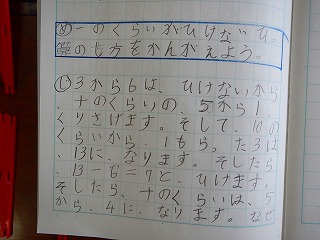 ㋱一のくらいがひけないひっ
算のし方をかんがえよう。
㋛3から6は、ひけないから
、十のくらいの、5から1
くりさげます。そして、10の
くらいから、1もらった3は
、13に、なります。そしたら
、13-6=7と、ひけます。
そしたら、十のくらいは、5
から、4に、なります。なぜ